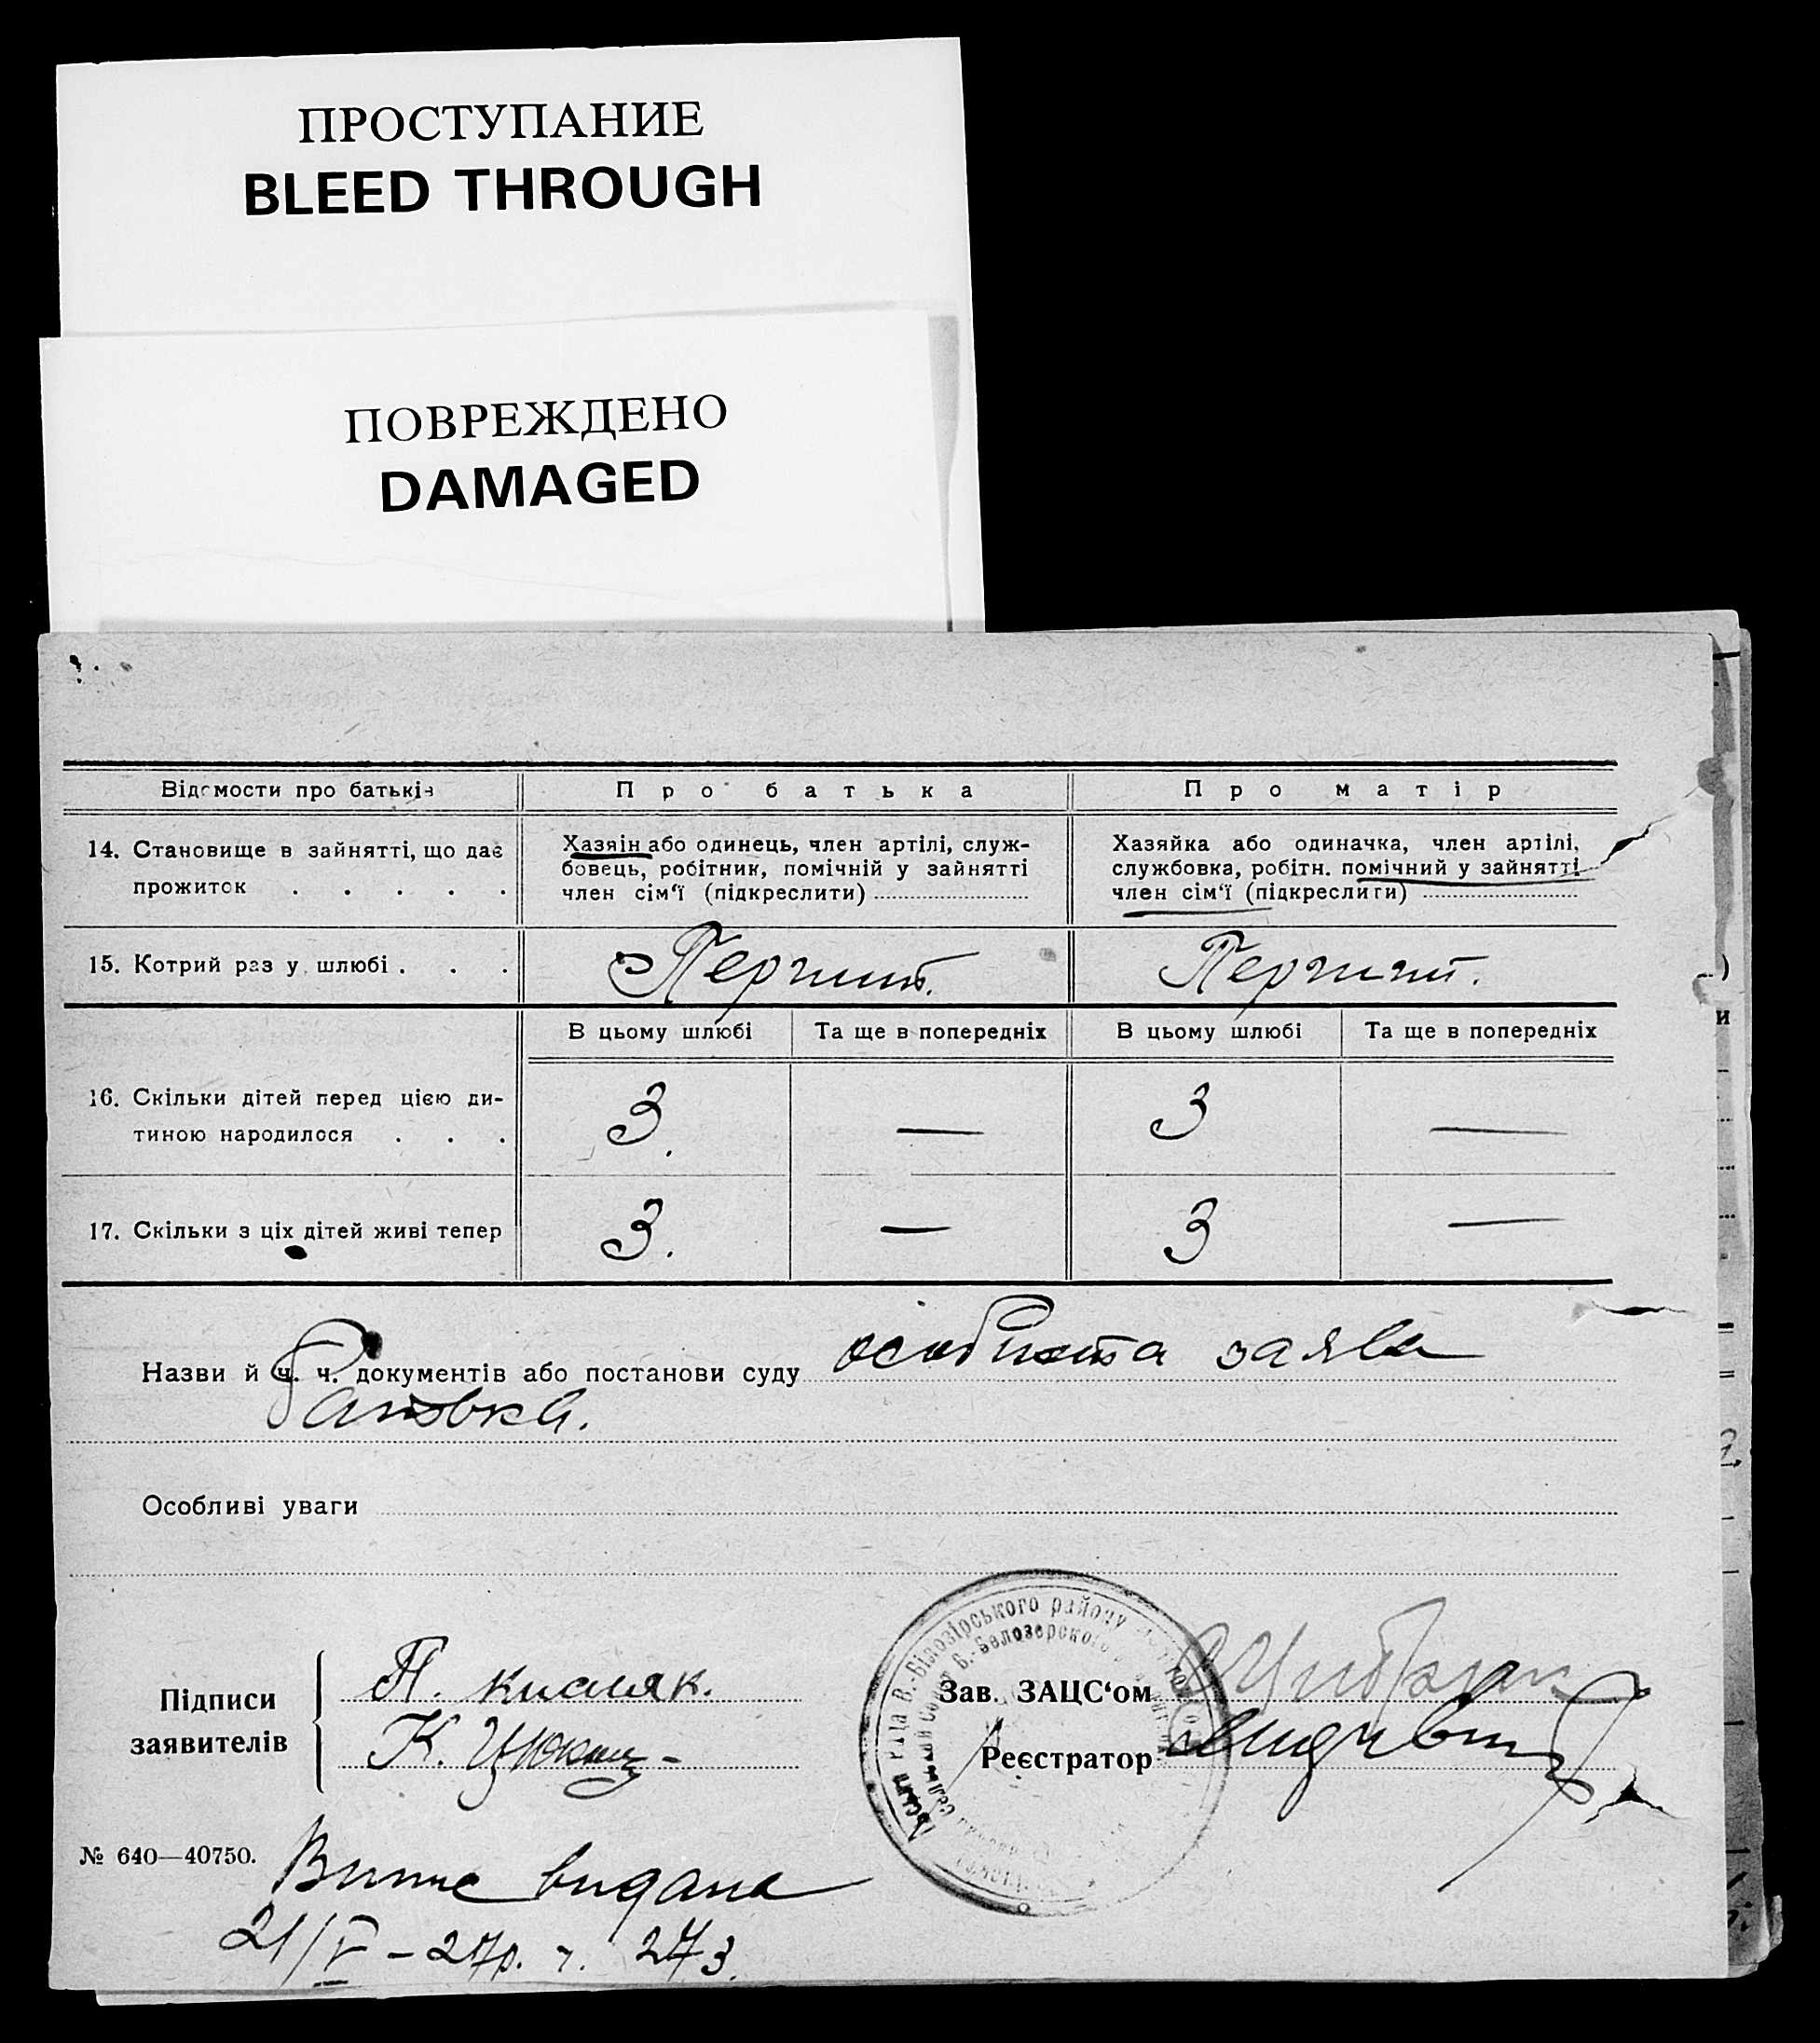 ПРОСТУПАНИЕ
BLEED THROUGH
ПОВРЕЖДЕНО
DAMAGED
Відомости про батьків
Про батька
Про матір
14. Становище в зайнятті, що дає
прожиток . . . . .
Хазяін або одинець, член артілі, служ-
бовець, робітник, помічній у зайнятті
член сім‘ї (підкреслити)
Хазяйка або одиначка, член артілі,
службовка, робітн. помічний у зайнятті
член сім‘ї (підкреслити)
15. Котрий раз у шлюбі . . .
Перший.
Перший.
В цьому шлюбі
Та ще в попередніх
В цьому шлюбі
Та ще в попередніх
16. Скільки дітей перед цією ди-
тиною народилося . . .
3.
—
3
—
17. Скільки з ціх дітей живі тепер
3.
—
3
—
Назви й ч. ч. документів або постанови суду особиста заява
батька.
Особливі уваги
Підписи
заявителів
П. кисляк.
К. Цюкало
Зав. ЗАЦС‘ом
Реєстратор
рада В.-Білозірського району
№ 640—40750.
Випис видана
21/V – 27р. ч. 273.